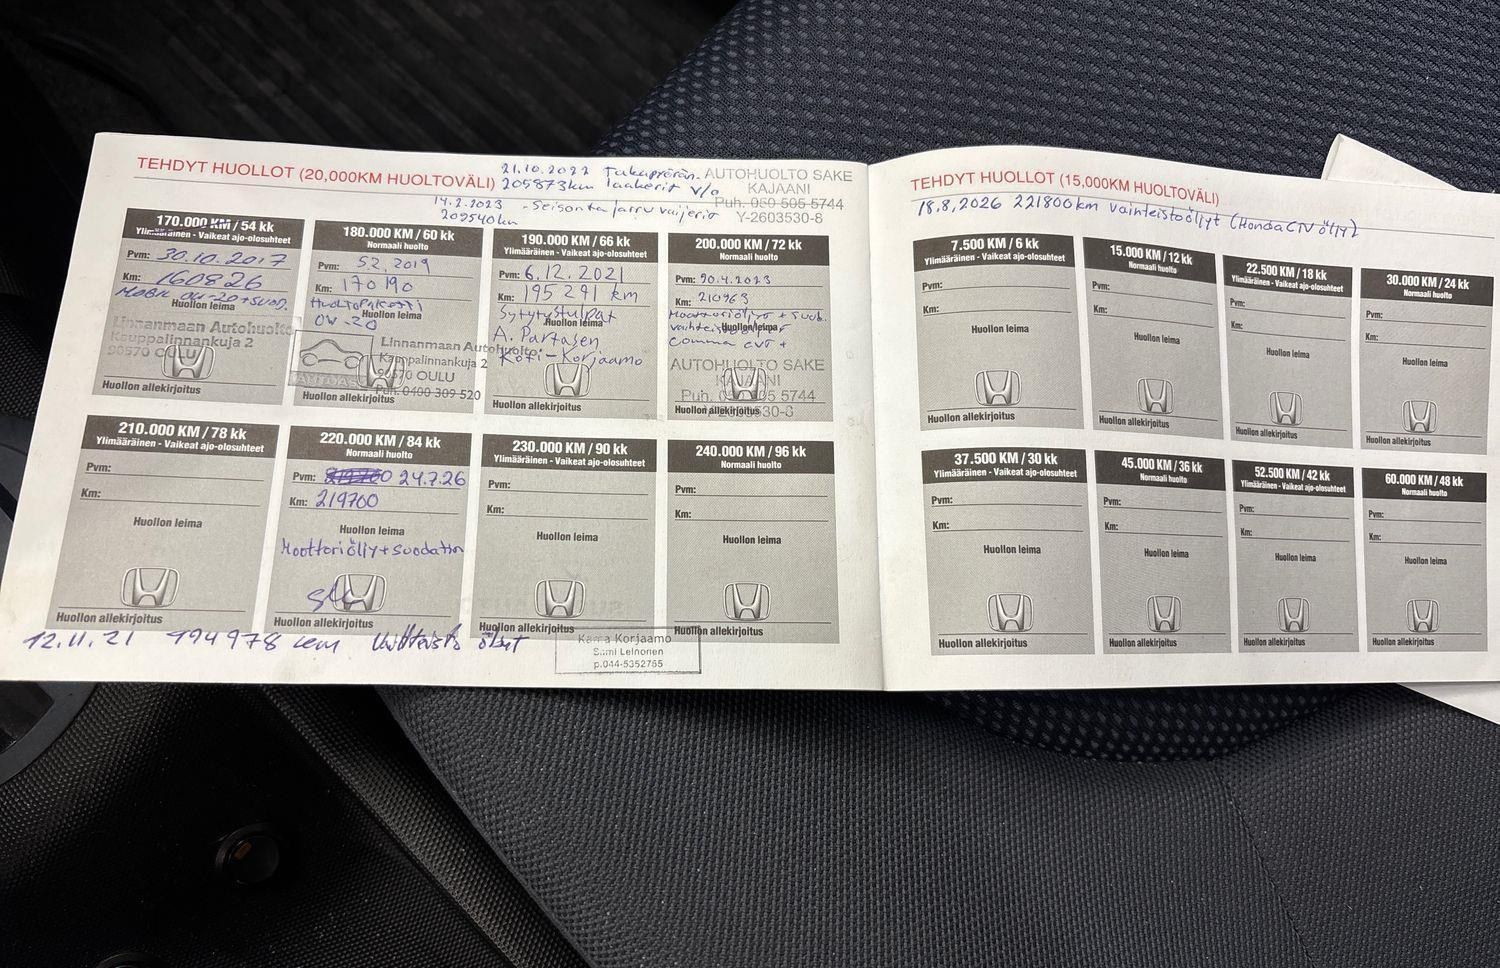 TEHDYT HUOLLOT (20,000KM HUOLTOVÄLI)
21.10.2022 Takapyörän.
205873km laakerit v/o
14.2.2023 - Seisontajarru vaijerit
209540km
AUTOHUOLTO SAKE
KAJAANI
Puh. 050 505 5744
Y-2603530-8
170.000 KM / 54 kk
Ylimääräinen - Vaikeat ajo-olosuhteet
Pvm: 30.10.2017
Km: 160826
MOBIL 0W-20 + SUOD.
Huollon leima
Linnanmaan Autohuolto
Kauppalinnankuja 2
90570 OULU
Huollon allekirjoitus
180.000 KM / 60 kk
Normaali huolto
Pvm: 5.2.2019
Km: 170190
Huollon leima
0W-20
Linnanmaan Autohuolto
Kauppalinnankuja 2
90570 OULU
Puh. 0400 309 520
Huollon allekirjoitus
190.000 KM / 66 kk
Ylimääräinen - Vaikeat ajo-olosuhteet
Pvm: 6.12.2021
Km: 195291 km
Sytytystulpat
Huollon leima
A. Partasen
Koti-Korjaamo
200.000 KM / 72 kk
Normaali huolto
Pvm: 20.4.2023
Km: 210963
Moottoriöljyt + suod.
vaihteistoöljyt
Huollon leima
Comma CVT +
AUTOHUOLTO SAKE
KAJAANI
Puh. 050 505 5744
Y-2603530-8
Huollon allekirjoitus
210.000 KM / 78 kk
Ylimääräinen - Vaikeat ajo-olosuhteet
Pvm:
Km:
Huollon leima
Huollon allekirjoitus
220.000 KM / 84 kk
Normaali huolto
Pvm: 24.7.26
Km: 219700
Huollon leima
Moottoriöljyt + suodatin
Huollon allekirjoitus
230.000 KM / 90 kk
Ylimääräinen - Vaikeat ajo-olosuhteet
Pvm:
Km:
Huollon leima
Huollon allekirjoitus
240.000 KM / 96 kk
Normaali huolto
Pvm:
Km:
Huollon leima
Huollon allekirjoitus
12.11.21 194978 km Vaihteisto öljyt
Korjaamo
Leinonen
p.044-5352765
TEHDYT HUOLLOT (15,000KM HUOLTOVÄLI)
18.8.2026 221800km Vaihteistoöljyt (Honda CTV öljy)
7.500 KM / 6 kk
Ylimääräinen - Vaikeat ajo-olosuhteet
Pvm:
Km:
Huollon leima
Huollon allekirjoitus
15.000 KM / 12 kk
Normaali huolto
Pvm:
Km:
Huollon leima
Huollon allekirjoitus
22.500 KM / 18 kk
Ylimääräinen - Vaikeat ajo-olosuhteet
Pvm:
Km:
Huollon leima
Huollon allekirjoitus
30.000 KM / 24 kk
Normaali huolto
Pvm:
Km:
Huollon leima
Huollon allekirjoitus
37.500 KM / 30 kk
Ylimääräinen - Vaikeat ajo-olosuhteet
Pvm:
Km:
Huollon leima
Huollon allekirjoitus
45.000 KM / 36 kk
Normaali huolto
Pvm:
Km:
Huollon leima
Huollon allekirjoitus
52.500 KM / 42 kk
Ylimääräinen - Vaikeat ajo-olosuhteet
Pvm:
Km:
Huollon leima
Huollon allekirjoitus
60.000 KM / 48 kk
Normaali huolto
Pvm:
Km:
Huollon leima
Huollon allekirjoitus